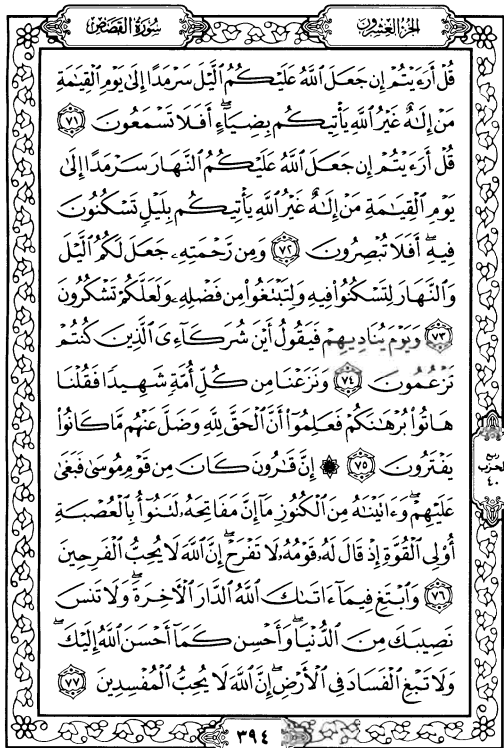 الجزء العشرون
سورة القصص
قُلْ أَرَءَيْتُمْ إِن جَعَلَ ٱللَّهُ عَلَيْكُمُ ٱلَّيْلَ سَرْمَدًا إِلَىٰ يَوْمِ ٱلْقِيَٰمَةِ
مَنْ إِلَٰهٌ غَيْرُ ٱللَّهِ يَأْتِيكُم بِضِيَآءٍ ۖ أَفَلَا تَسْمَعُونَ ٧١
قُلْ أَرَءَيْتُمْ إِن جَعَلَ ٱللَّهُ عَلَيْكُمُ ٱلنَّهَارَ سَرْمَدًا إِلَىٰ
يَوْمِ ٱلْقِيَٰمَةِ مَنْ إِلَٰهٌ غَيْرُ ٱللَّهِ يَأْتِيكُم بِلَيْلٍ تَسْكُنُونَ
فِيهِ ۖ أَفَلَا تُبْصِرُونَ ٧٢ وَمِن رَّحْمَتِهِۦ جَعَلَ لَكُمُ ٱلَّيْلَ
وَٱلنَّهَارَ لِتَسْكُنُوا۟ فِيهِ وَلِتَبْتَغُوا۟ مِن فَضْلِهِۦ وَلَعَلَّكُمْ تَشْكُرُونَ
٧٣ وَيَوْمَ يُنَادِيهِمْ فَيَقُولُ أَيْنَ شُرَكَآءِىَ ٱلَّذِينَ كُنتُمْ
تَزْعُمُونَ ٧٤ وَنَزَعْنَا مِن كُلِّ أُمَّةٍ شَهِيدًا فَقُلْنَا
هَاتُوا۟ بُرْهَٰنَكُمْ فَعَلِمُوٓا۟ أَنَّ ٱلْحَقَّ لِلَّهِ وَضَلَّ عَنْهُم مَّا كَانُوا۟
يَفْتَرُونَ ٧٥ ۞ إِنَّ قَٰرُونَ كَانَ مِن قَوْمِ مُوسَىٰ فَبَغَىٰ
عَلَيْهِمْ ۖ وَءَاتَيْنَٰهُ مِنَ ٱلْكُنُوزِ مَآ إِنَّ مَفَاتِحَهُۥ لَتَنُوٓأُ بِٱلْعُصْبَةِ
أُو۟لِى ٱلْقُوَّةِ إِذْ قَالَ لَهُۥ قَوْمُهُۥ لَا تَفْرَحْ ۖ إِنَّ ٱللَّهَ لَا يُحِبُّ ٱلْفَرِحِينَ
٧٦ وَٱبْتَغِ فِيمَآ ءَاتَىٰكَ ٱللَّهُ ٱلدَّارَ ٱلْءَاخِرَةَ ۖ وَلَا تَنسَ
نَصِيبَكَ مِنَ ٱلدُّنْيَا ۖ وَأَحْسِن كَمَآ أَحْسَنَ ٱللَّهُ إِلَيْكَ ۖ
وَلَا تَبْغِ ٱلْفَسَادَ فِى ٱلْأَرْضِ ۖ إِنَّ ٱللَّهَ لَا يُحِبُّ ٱلْمُفْسِدِينَ ٧٧
ربع
الحزب
٤٠
٣٩٤